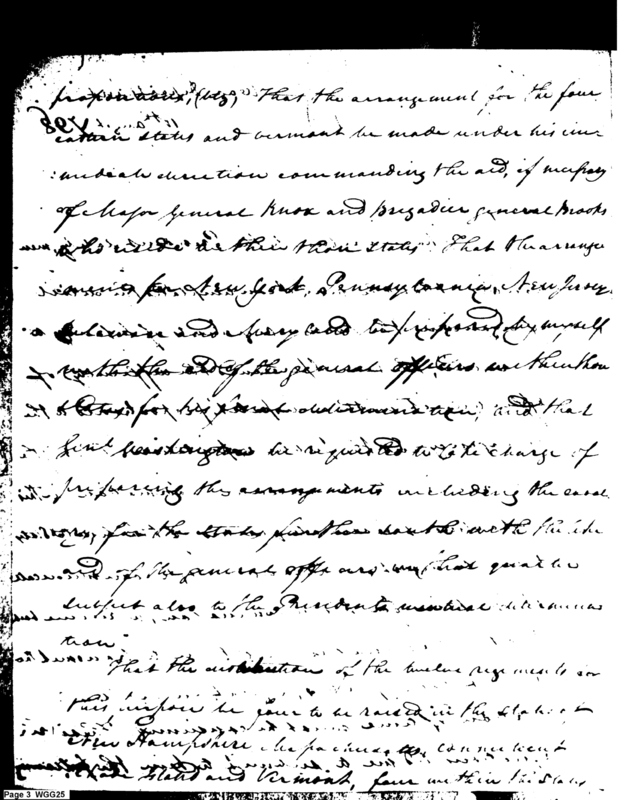 propositions, (viz) That the arrangement for the four
eastern states and vermont be made under his im
mediate direction commanding the aid, if necessary
of Major General Knox and Brigadier general Brooks
who reside within those States. That the arrange
ments for New York, Pennsylvania, New Jersey
Delaware and Maryland be prepared by myself
with the aid of the general officers within those
States for his final determination, and that
Genl Washington be requested to take charge of
preparing the arrangements including the caval
ry, for the States further south with the like
aid of the general officers in that quarter
subject also to the Presidents determina
tion
That the distribution of the twelve regiments for
this purpose be four to be raised in the States of
New Hampshire Massachusetts Connecticut
Island and Vermont, four within the States
Page 3 WGG25